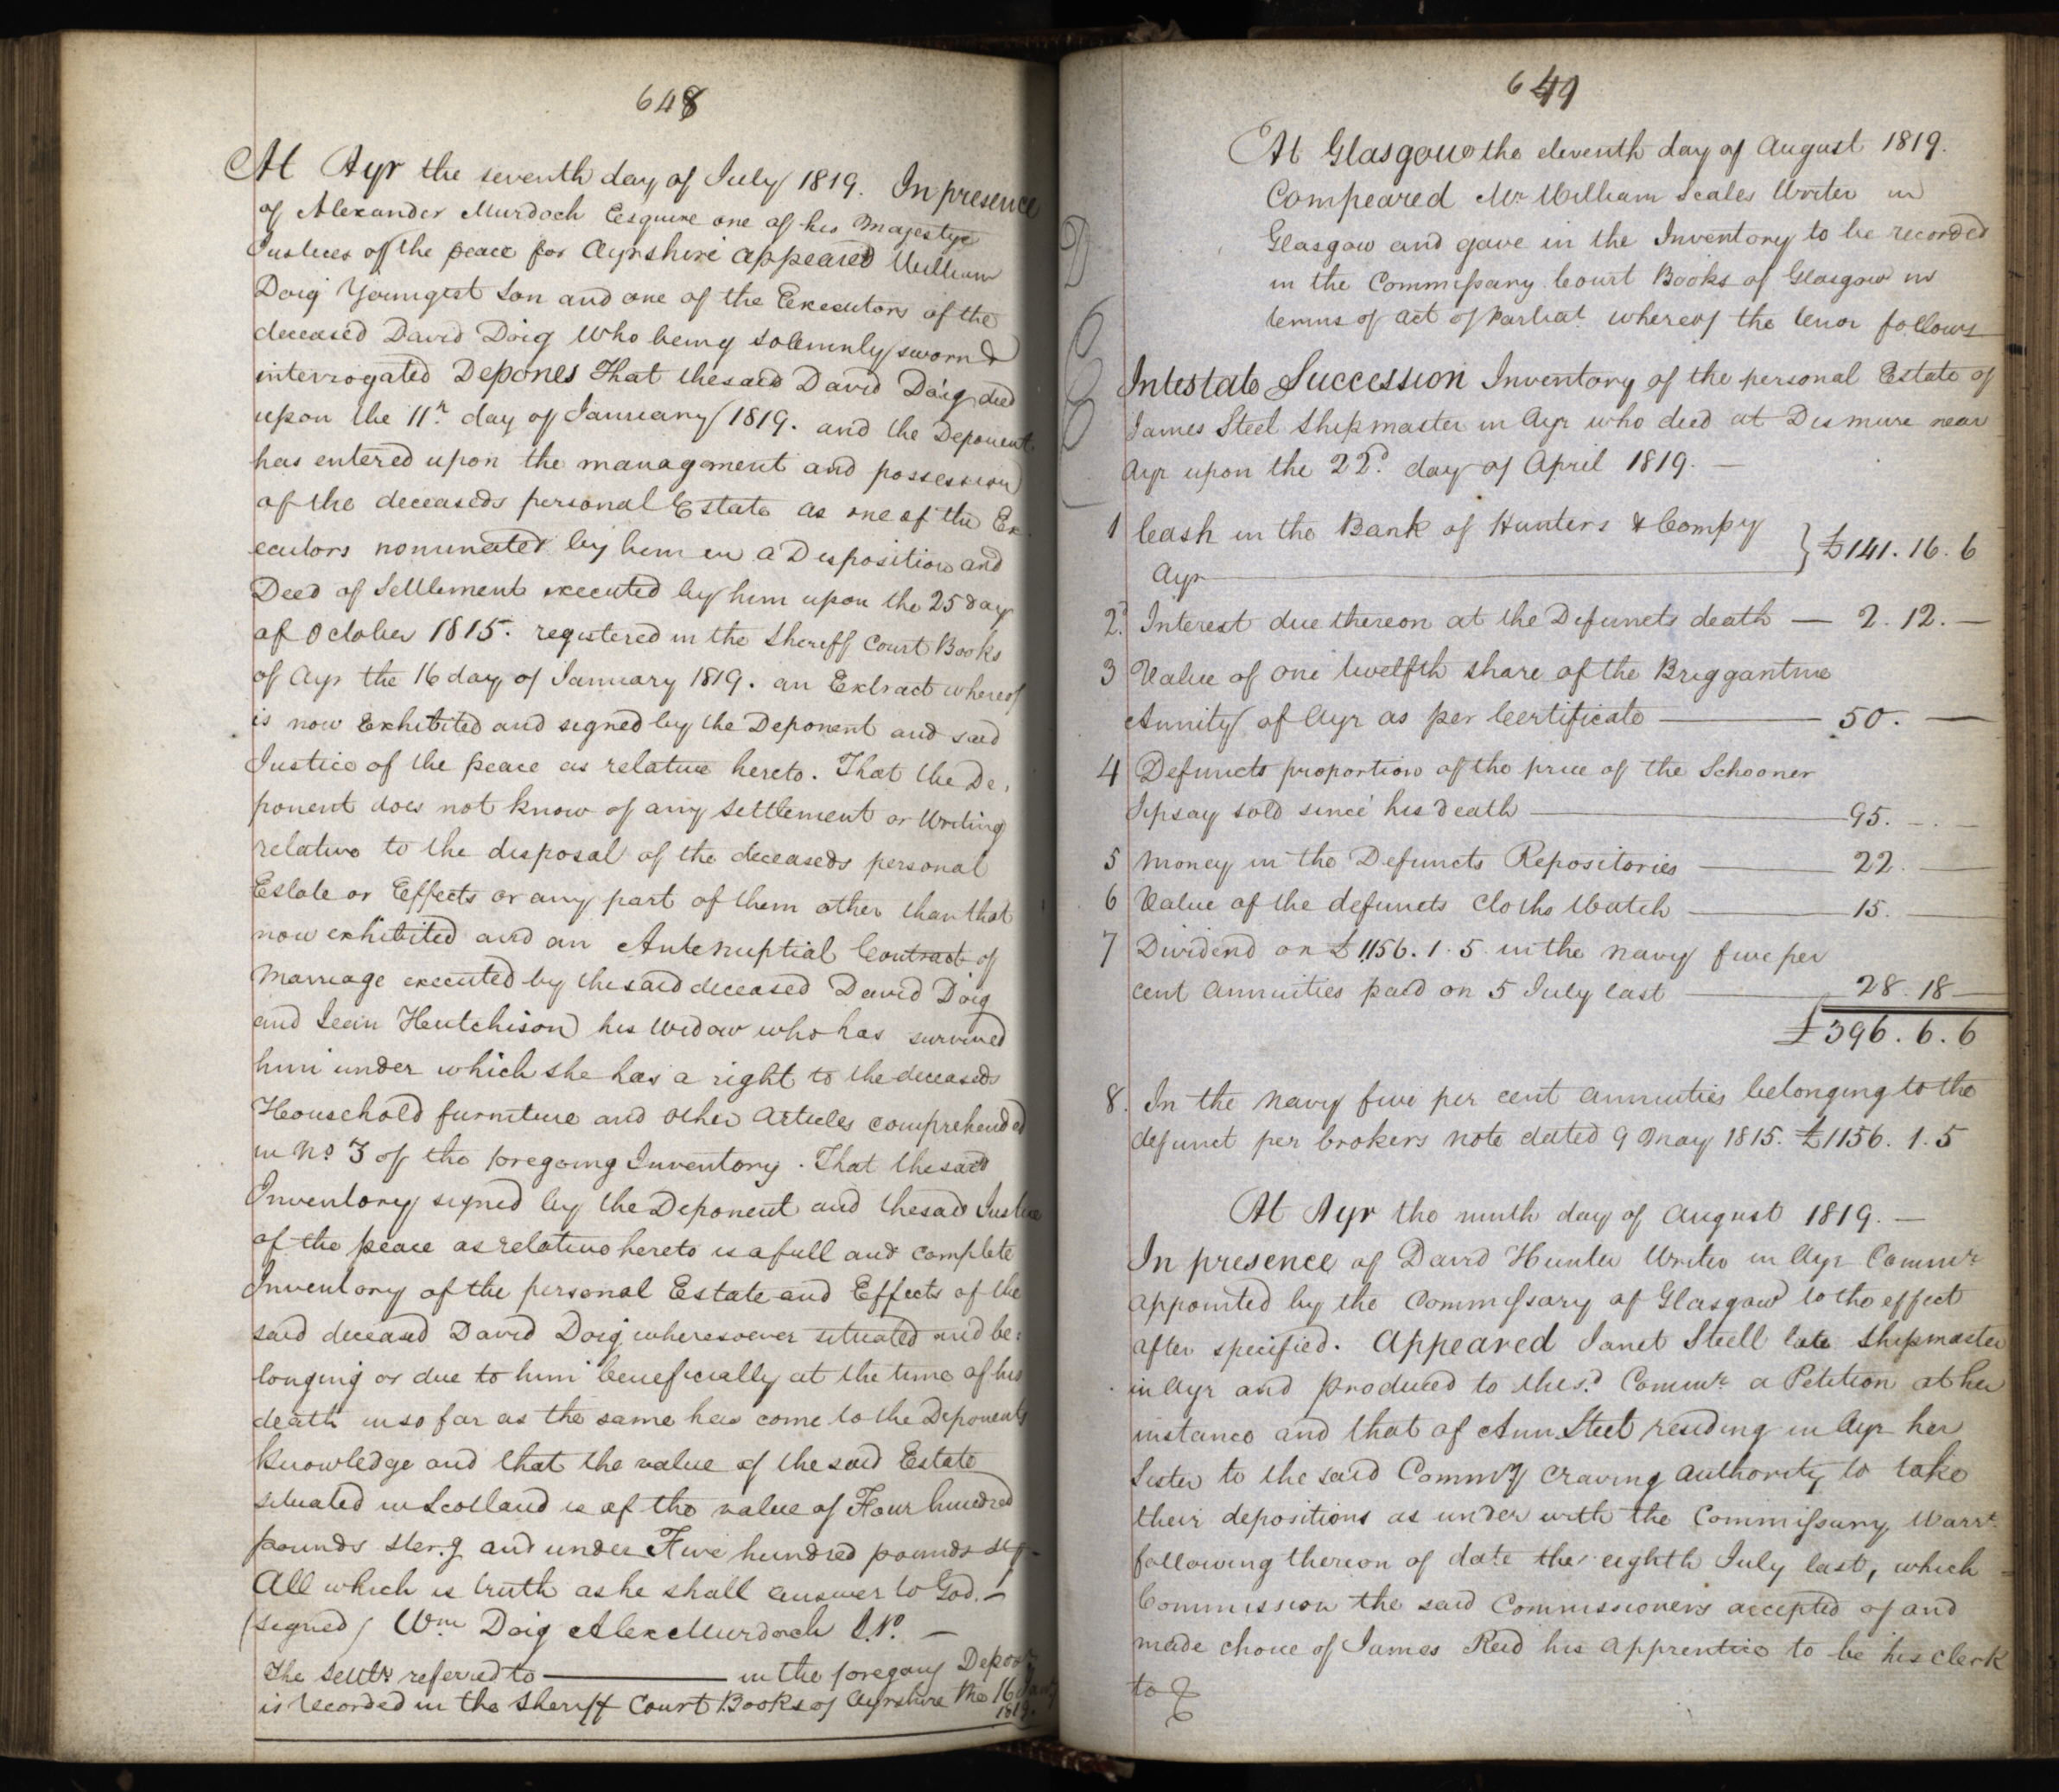 648
At Ayr the seventh day of July 1819. In presence
of Alexander Murdoch Esquire one of his Majestys
Justices of the peace for Ayrshire appeared William
Doig Youngest Son and one of the Executors of the
deceased David Doig Who being solemnly sworn &
interrogated Depones That the said David Doig died
upon the 11th day of January 1819. and the Deponent
has entered upon the management and possession
of the deceaseds personal Estate as one of the Ex
ecutors nominated by him in a Disposition and
Deed of Settlement executed by him upon the 25 day
of October 1815. registered in the Sheriff Court Books
of Ayr the 16 day of January 1819. an Extract whereof
is now Exhibited and signed by the Deponent and said
Justice of the peace as relative hereto. That the De,
ponent does not know of any settlement or Writing
relative to the disposal of the deceaseds personal
Estate or Effects or any part of them other than that
now exhibited and an Antenuptial Contract of
Marriage executed by the said deceased David Doig
and Jean Hutchison his Widow who has survived
him under which she has a right to the deceaseds
Household furniture and other Articles comprehended
in No. 3 of the foregoing Inventory. That the said
Inventory signed by the Deponent and the said Justice
of the peace as relative hereto is a full and complete
Inventory of the personal Estate and Effects of the
said deceased David Doig wheresoever situated and be:
longing or due to him beneficially at the time of his
death in so far as the same has come to the Deponents
knowledge and that the value of the said Estate
situated in Scotland is of the value of Four hundred
pounds Ster.g and under Five hundred pounds stg.
All which is truth as he shall answer to God. -
(signed) Wm Doig Alex Murdoch J.P. -
The Settlt referred to in the foregoing Deposn
is recorded in the Sheriff Court Books of Ayrshire the 16 Jany
1819.
649
At Glasgow the eleventh day of August 1819.
Compeared Mr William Scales Writer in
Glasgow and gave in the Inventory to be recorded
in the Commissary Court Books of Glasgow in
terms of act of Parliat whereof the tenor follows
Intestate Succession Inventory of the personal Estate of
James Steel Shipmaster in Ayr who died at Dismure near
Ayr upon the 22d. day of April 1819. -
1 Cash in the Bank of Hunters & Compy
Ayr } £141. 16. 6
2d. Interest due thereon at the Defuncts death - 2. 12. -
3 Value of one twelfth share of the Briggantine
Annity of Ayr as per Certificate - 50. -
4 Defuncts proportion of the price of the Schooner
Jepsay sold since his death - 95. -. -
5 Money in the Defuncts Repositories - 22. -
6 Value of the defuncts Cloths Watch - 15. -
7 Dividend on £1156. 1. 5. in the navy five per
cent annuities paid on 5 July last - 28. 18 -
£396. 6. 6
8. In the Navy five per cent annuities belonging to the
defunct per brokers note dated 9 May 1815. £1156. 1. 5
At Ayr the ninth day of August 1819. -
In presence of David Hunter Writer in Ayr Commr
appointed by the Commissary of Glasgow to the effect
after specified. Appeared Janet Steell late Shipmaster
in Ayr and produced to the sd. Commr a Petition at her
instance and that of Ann Steel residing in Ayr her
Sister to the said Commy craving authority to take
their depositions as under with the Commissary Warrt.
following thereon of date the eighth July last, which
Commission the said Commissioners accepted of and
made choice of James Reid his apprentice to be his clerk
to